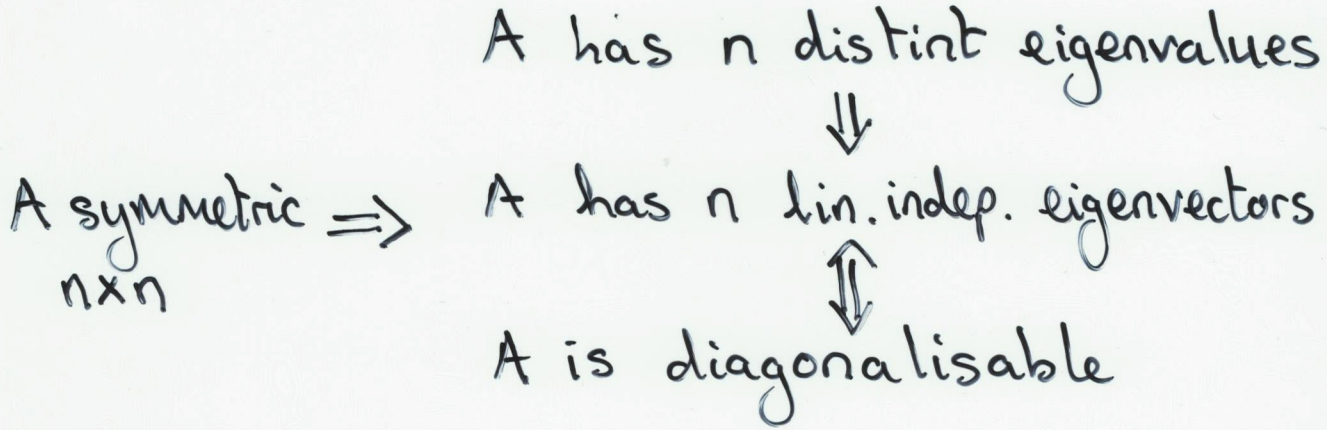 A has n distint eigenvalues
⇓
A symmetric ⇒ A has n lin. indep. eigenvectors
n×n
⇕
A is diagonalisable